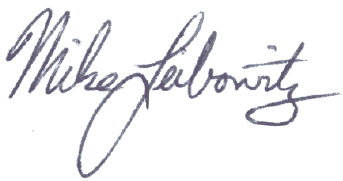 Mike Leibowitz